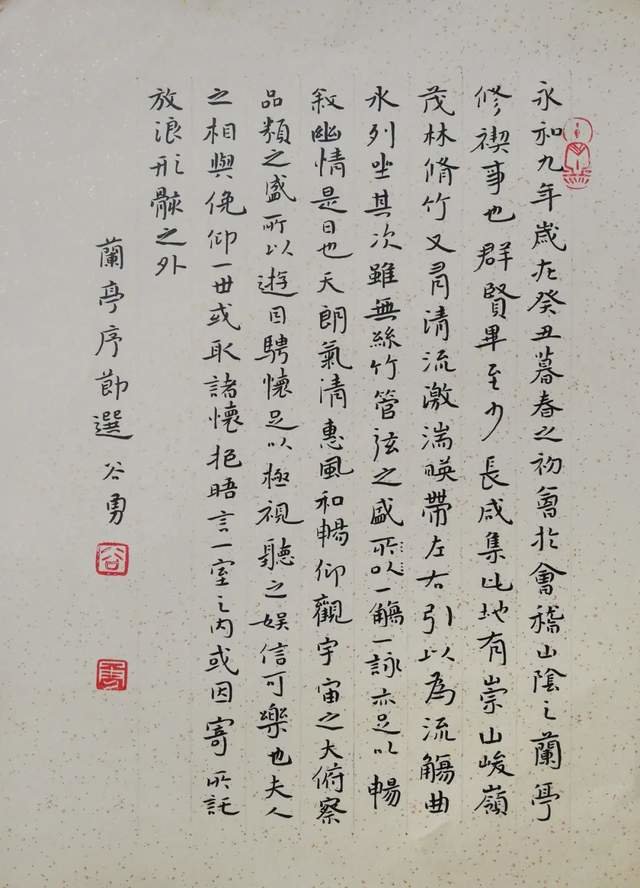 永和九年歲在癸丑暮春之初會於會稽山陰之蘭亭
修禊事也群賢畢至少長咸集此地有崇山峻嶺
茂林脩竹又有清流激湍暎帶左右引以為流觴曲
水列坐其次雖無絲竹管弦之盛所以一觴一詠亦足以暢
敘幽情是日也天朗氣清惠風和暢仰觀宇宙之大俯察
品類之盛所以遊目騁懷足以極視聽之娛信可樂也夫人
之相與俛仰一世或取諸懷抱晤言一室之內或因寄所託
放浪形骸之外
蘭亭序節選 谷勇
谷